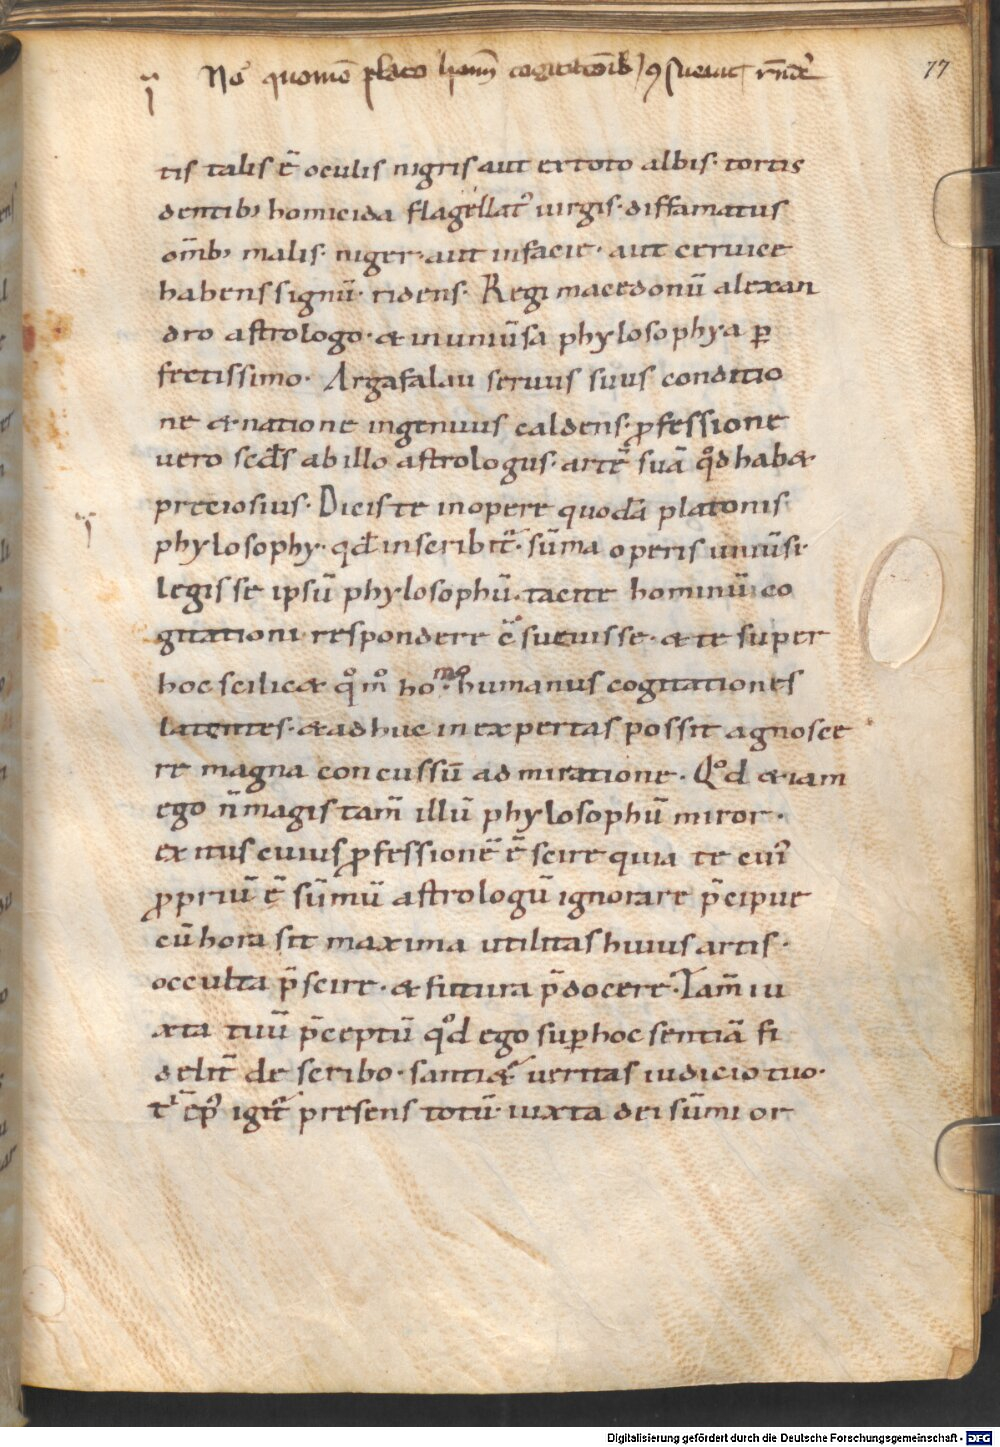 No͞ quomo͞ plato ho͞i͞m cogitac͞oib) ꝯsueuit rn͞de͞
77
tis talis e͞ oculis nigris aut ex toto albis· tortis
dentib; homicida flagellat᷑ uirgis· diffamatus
om͞ib; malis· niger· aut in facie· aut ceruice
habens signu͞· ridens· Regi macedonu͞ alexan
dro astrologo· & in uniu͞sa phylosophya ꝑ
fectissimo· Argafalau seruus suus conditio
ne & natione ingenuus caldens· ꝓfessione
uero scd͞s ab illo astrologus· arte͞ sua͞ qd͛ hab&
preciosius· Dicis te in opere quoda͞ platonis
phylosophy· qd͞ inscribit᷑· su͞ma operis uniu͞si·
legisse ipsu͞ phylosophu͞· tacite hominu͞ co
gitationi respondere e͞ sueuisse· & te super
hoc scilic& qͦmͦ homo· humanus cogitationes
latentes· & adhuc inexpertas possit agnosce
re magna concussu͞ admiratione· Qͦd &iam
ego n͞ magis tam͞ illu͞ phylosophu͞ miror·
ex itus cuius ꝓfessione͞ e͞ scire quia te cui᷑
ꝓpriu͞ e͞ su͞mu͞ astrologu͞ ignorare p͞cipue
cu͞ hora sit maxima utilitas huius artis·
occulta p͞scire· & futura p͞docere· Tam͞ iu
xta tuu͞ p͞ceptu͞ qͦd ego suꝑ hoc sentia͞ fi
delit͞ de scribo· santi& ueritas iudicio tuo·
igit᷑ presens totu͞· iuxta dei su͞mi or
Digitalisierung gefördert durch die Deutsche Forschungsgemeinschaft - DFG